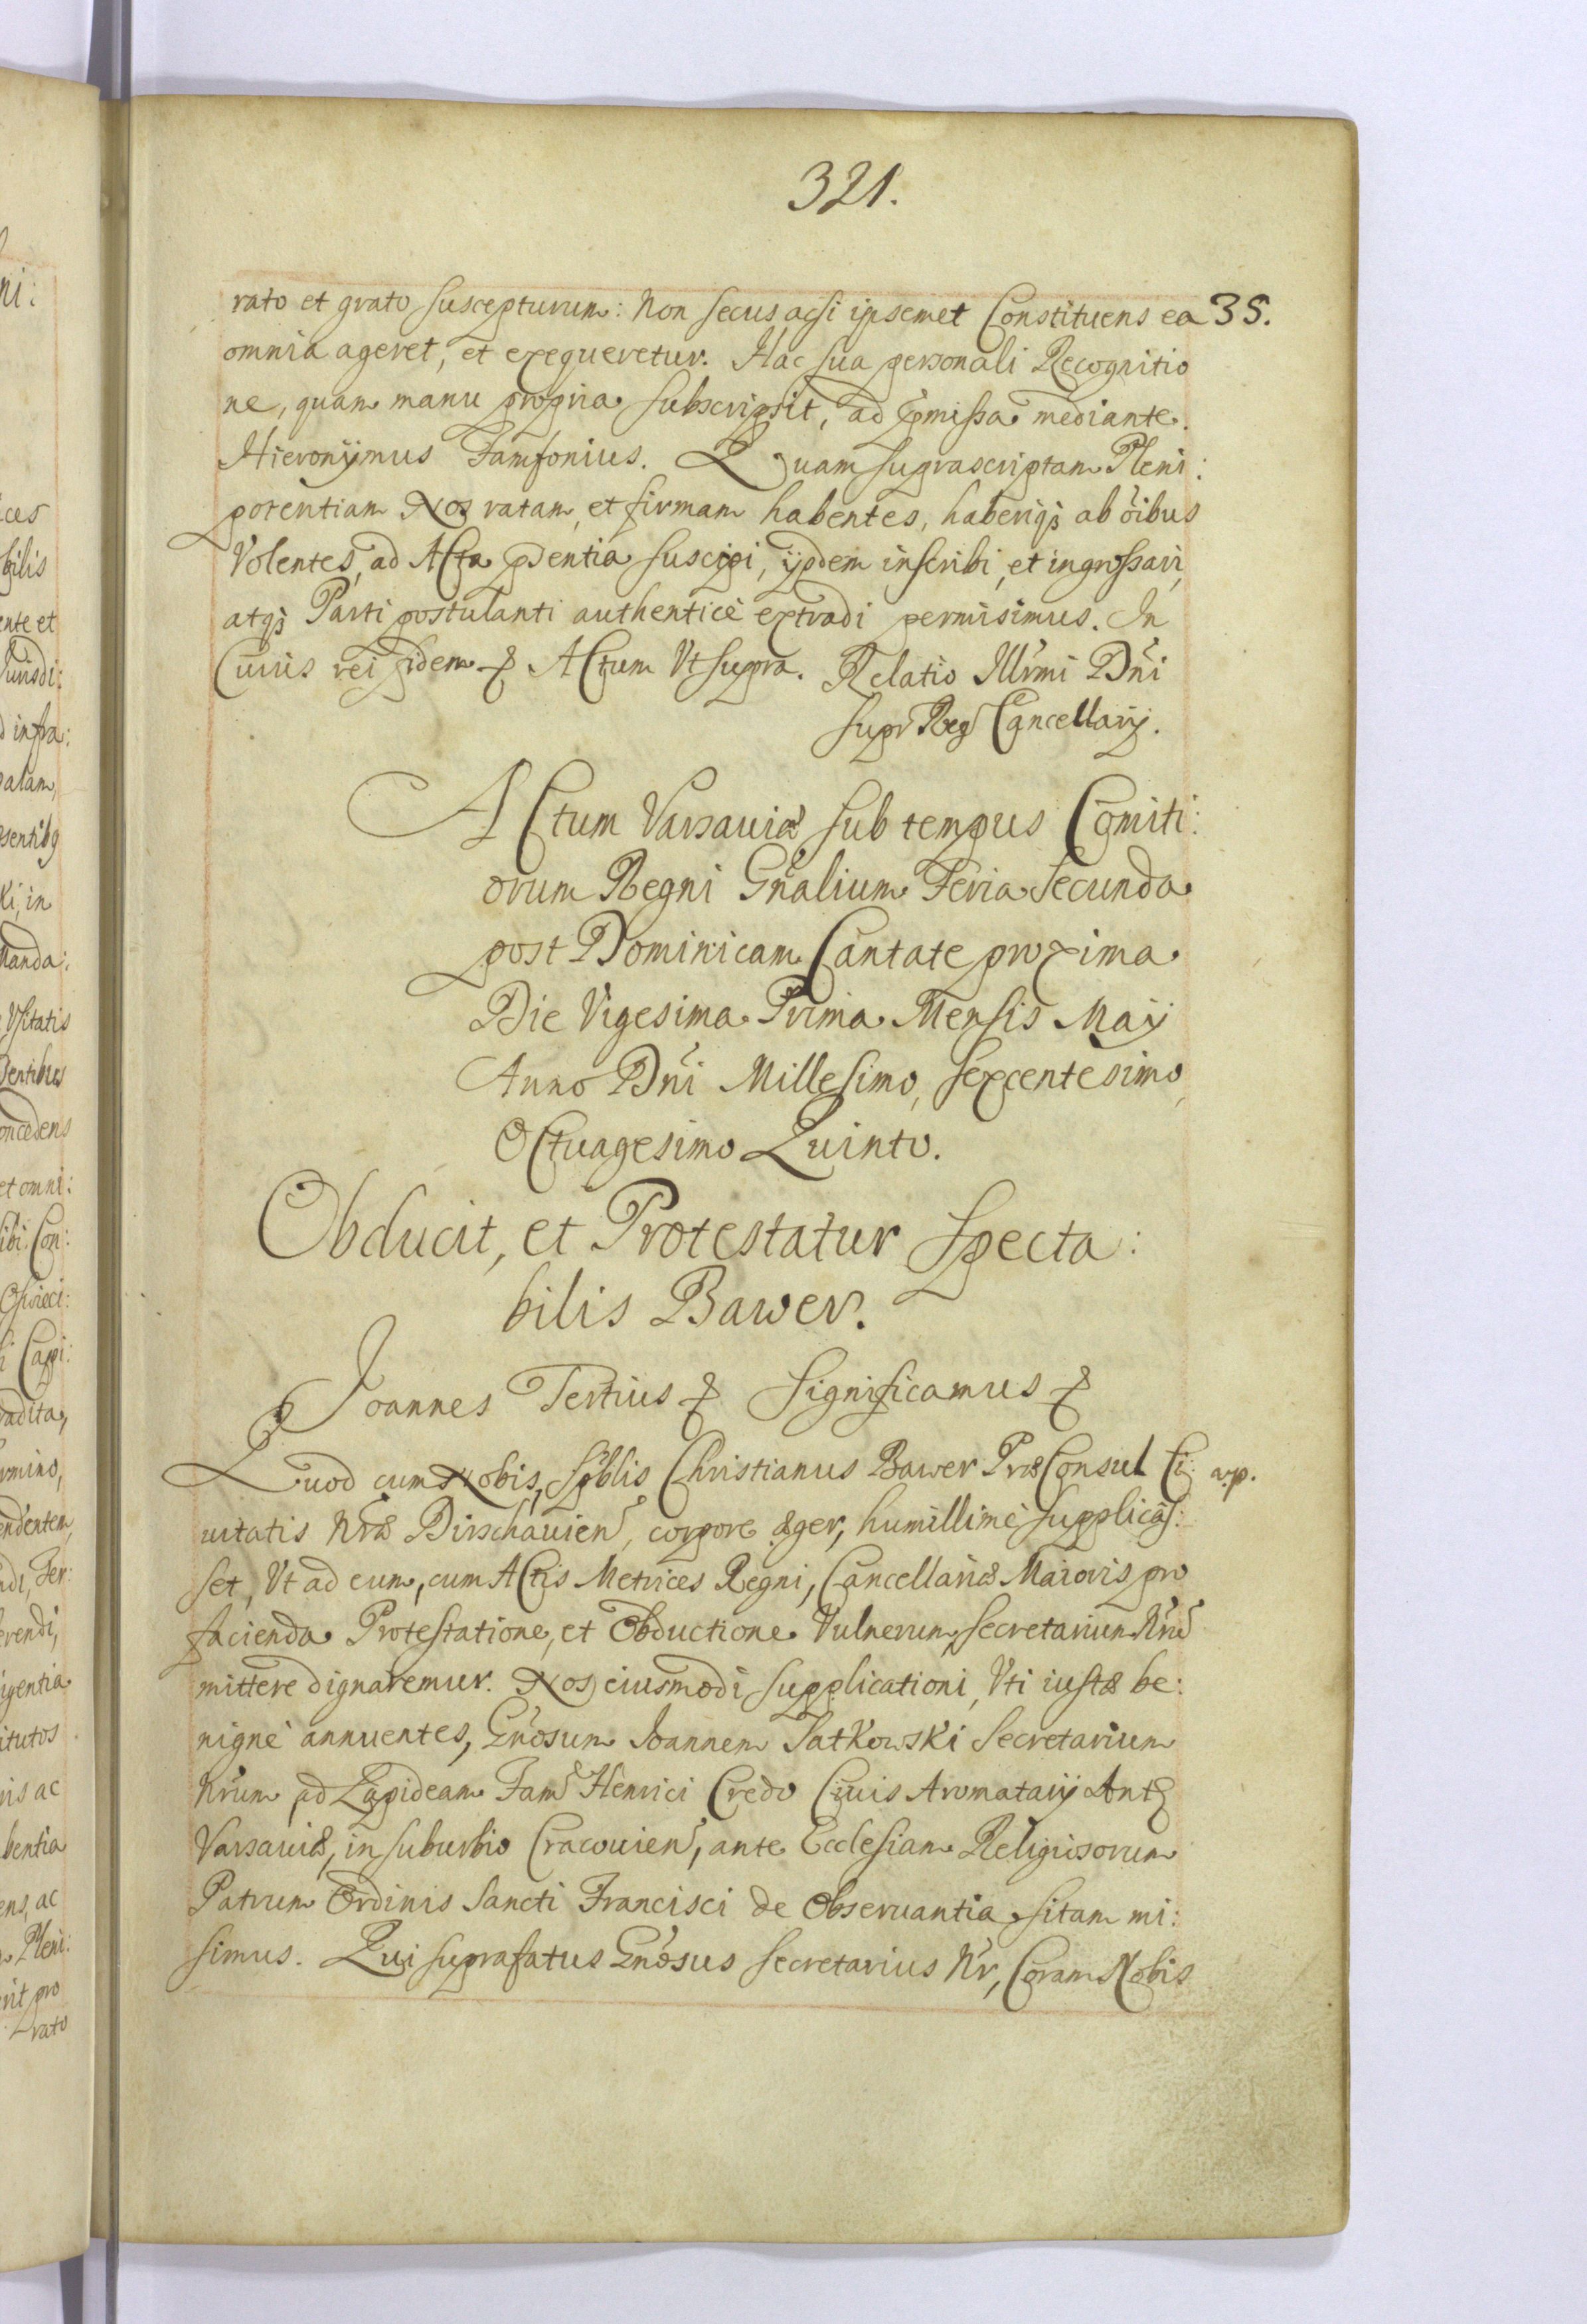 321.
rato et grato suscepturum: Non secus acsi ipsemet Constituens ea 35.
omnia ageret, et exequeretur. Hac sua personali Recognitio
ne, quam manu propria subscripsit, ad pmissa mediante.
Hieronymus Tamfonius. Quam suprascriptam Pleni:
potentiam Nos ratam, et firmam habentes, haberiqꝫ ab oibus
Volentes, ad Acta pdentia suscipi, ijsdem inscribi, et ingrossari,
atqꝫ Parti postulanti authenticè extradi permisimus. In
Cuius rei fidem & Actum Vt supra. Relatio Illrmi Dni
supr Reg Cancellarij.
Actum Varsauiæ sub tempus Comiti:
orum Regni Gnalium Feria Secunda
post Dominicam Cantate proxima
Die Vigesima Prima Mensis Maij
Anno Dni Millesimo, Sexcentesimo,
Octuagesimo Quinto.
Obducit, et Protestatur Specta:
bilis Bawer.
Joannes Tertius & Significamus &
Quod cum Nobis, Spblis Christianus Bawer PræConsul Ci: a.p.
uitatis Nræ Dirschauien, corpore æger, humillimè supplicas:
set, Vt ad eum, cum Actis Metrices Regni, Cancellariæ Maioris pro
facienda Protestatione, et Obductione Vulnerum, Secretarium Nrum
mittere dignaremur. Nos eiusmodi supplicationi, Vti iustæ be:
nignè annuentes, Gnosum Joannem Satkowski Secretarium
Nrum ad Lapideam Fam Henrici Credo Ciuis Aromatarij Antq
Varsauiæ, in suburbio Cracouien, ante Ecclesiam Religiosorum
Patrum Ordinis Sancti Francisci de Obseruantia sitam mi:
simus. Qui suprafatus Gnosus Secretarius Nr, Coram Nobis